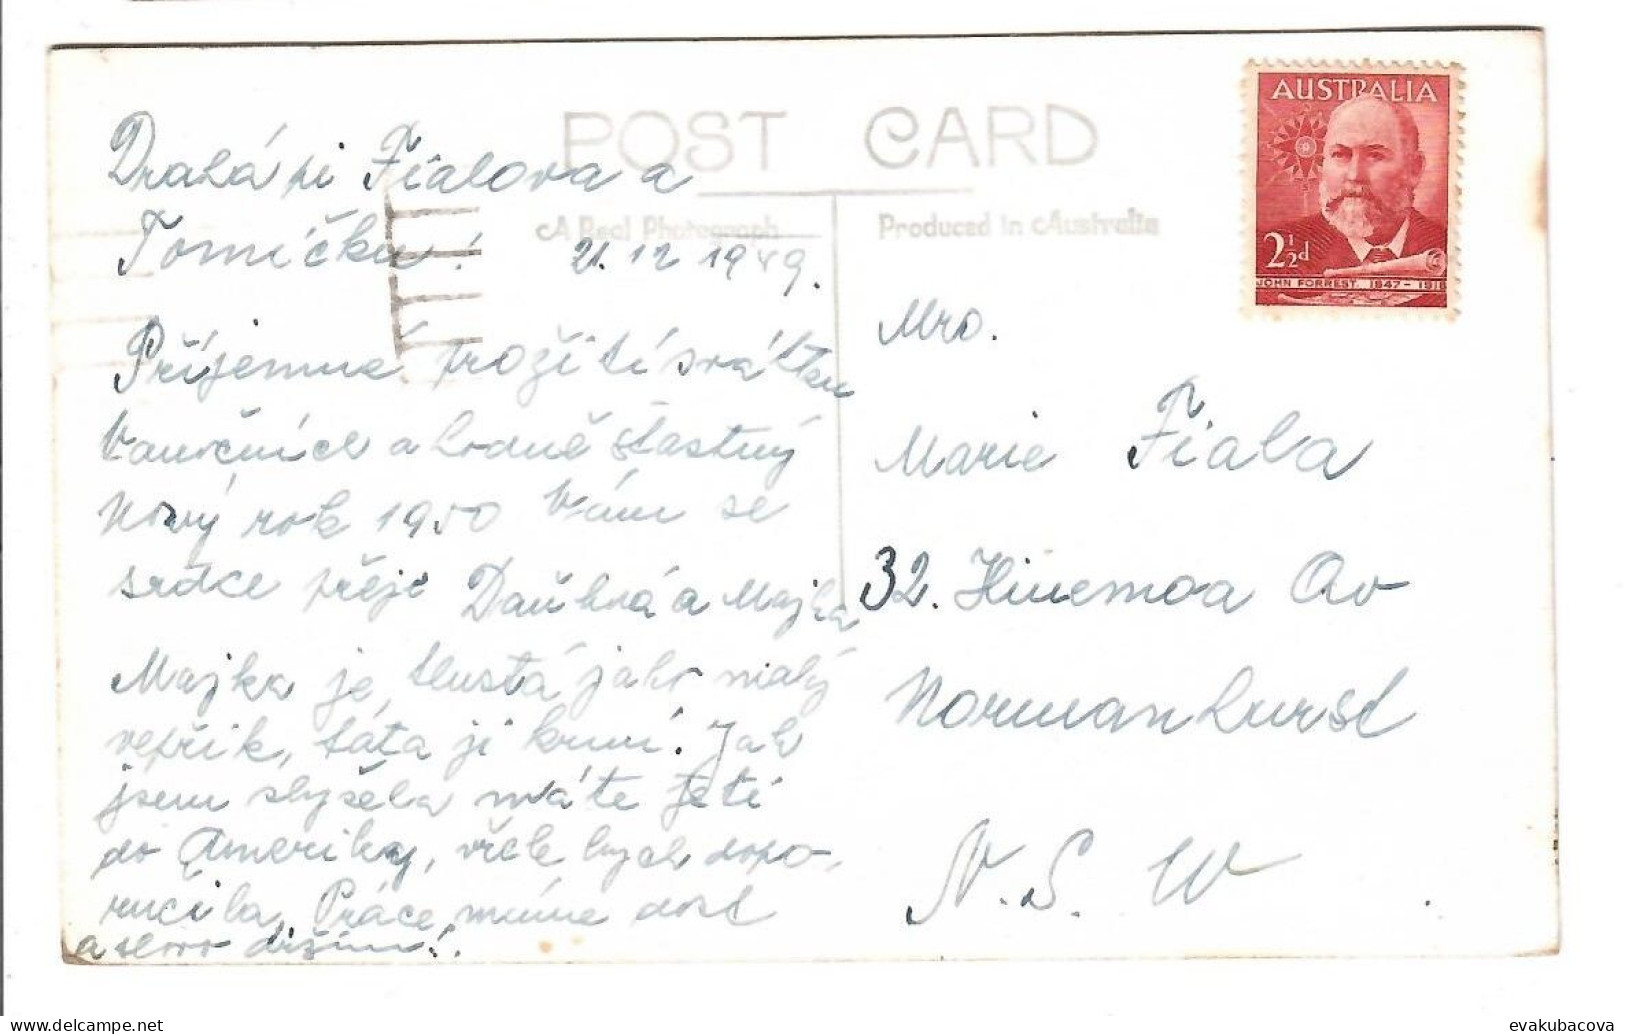 POST CARD
A Real Photograph
Produced in Australia
AUSTRALIA
2½d
JOHN FORREST. 1847 - 1918
Drahá pí Fialova a
Tomíčku! 21.12 1949.
Příjemne prožití svátku
Vanočnich a hodně štastný
Nový rok 1950 Vám se
srdce přeje a Majka
Majka je tlustá jako malý
vepřik, táta ji krmí! Jak
jsem slyšela máte jeti
do Ameriky, bych dopo-
ručila, Práce máme dost
a slovo držím!
Mrs.
Marie Fiala
32. Hinemoa Av
Normanhurst
N. S. W.
evakubacova